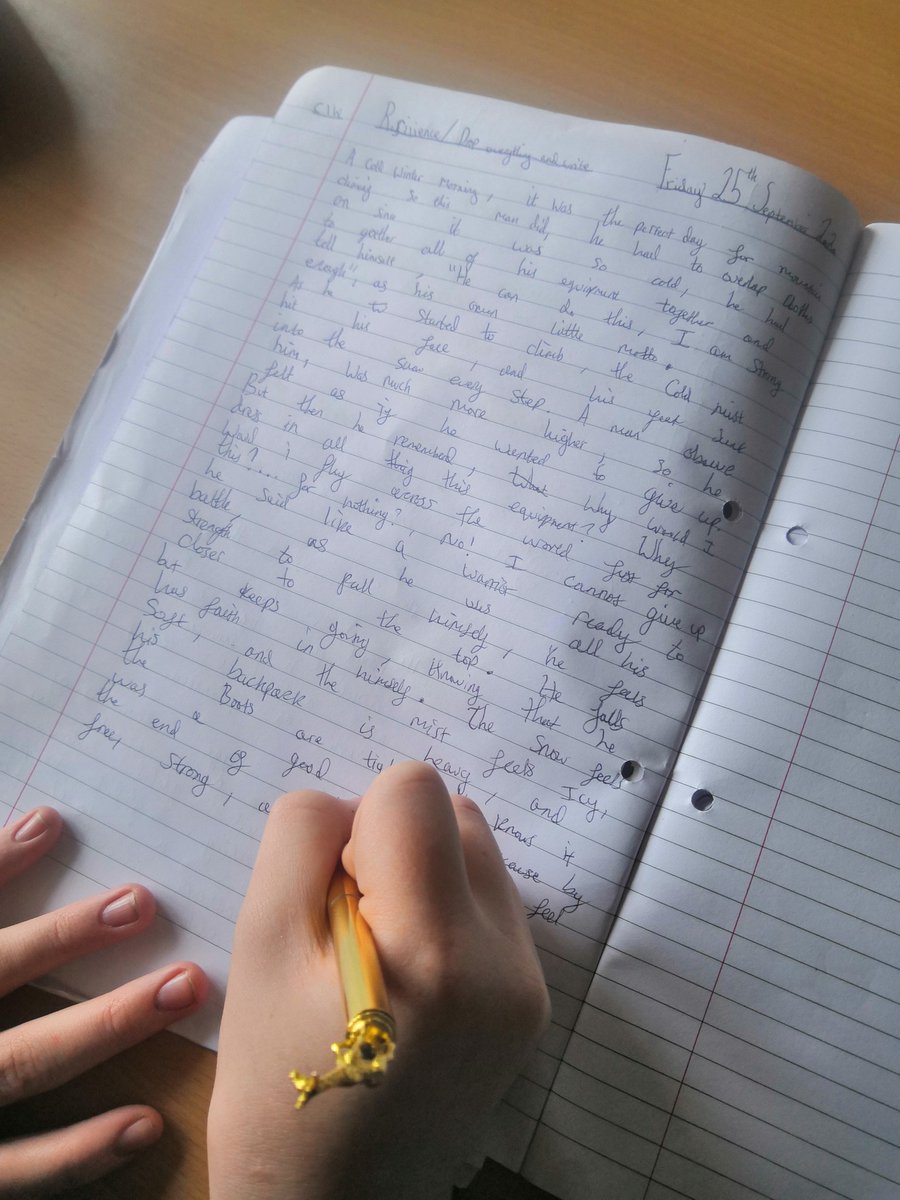 C/W Resilience/Drop everything and write Friday 25th September 2020
A cold winter morning, it was the perfect day for mountain
climing so this man did, he had to overlap clothes
on sinse it was so cold, he had
to gather all of his equipment together and
tell himself, "He can do this, I am strong
enough", as his own little motto.
As he to started to climb, the cold mist
hit his face, and his feet sunk
into the snow every step. A man above
him, was much more higher, so he
felt as if he wanted to give up.
But then he remembered, What Why would I
dress in all thig this equipment? Why
would i fly across the world just for
this?.... for nothing?, No! I cannot give up
he said like a warrior ready to
battle, as he was all his
strength to pull himself, he feels
closer to the top. He falls
but keeps going, knowing that he
has faith in himself. The snow feels
soft, and the mist feels Icy,
his backpack is heavy, and
the Boots are tig
was a knows it
the end of good cause by
free, strong, feel